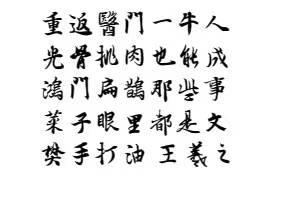 重返醫門一牛人
光骨挑肉也能成
鴻門扁鵲那些事
菜子眼里都是文
樊手打油 王羲之